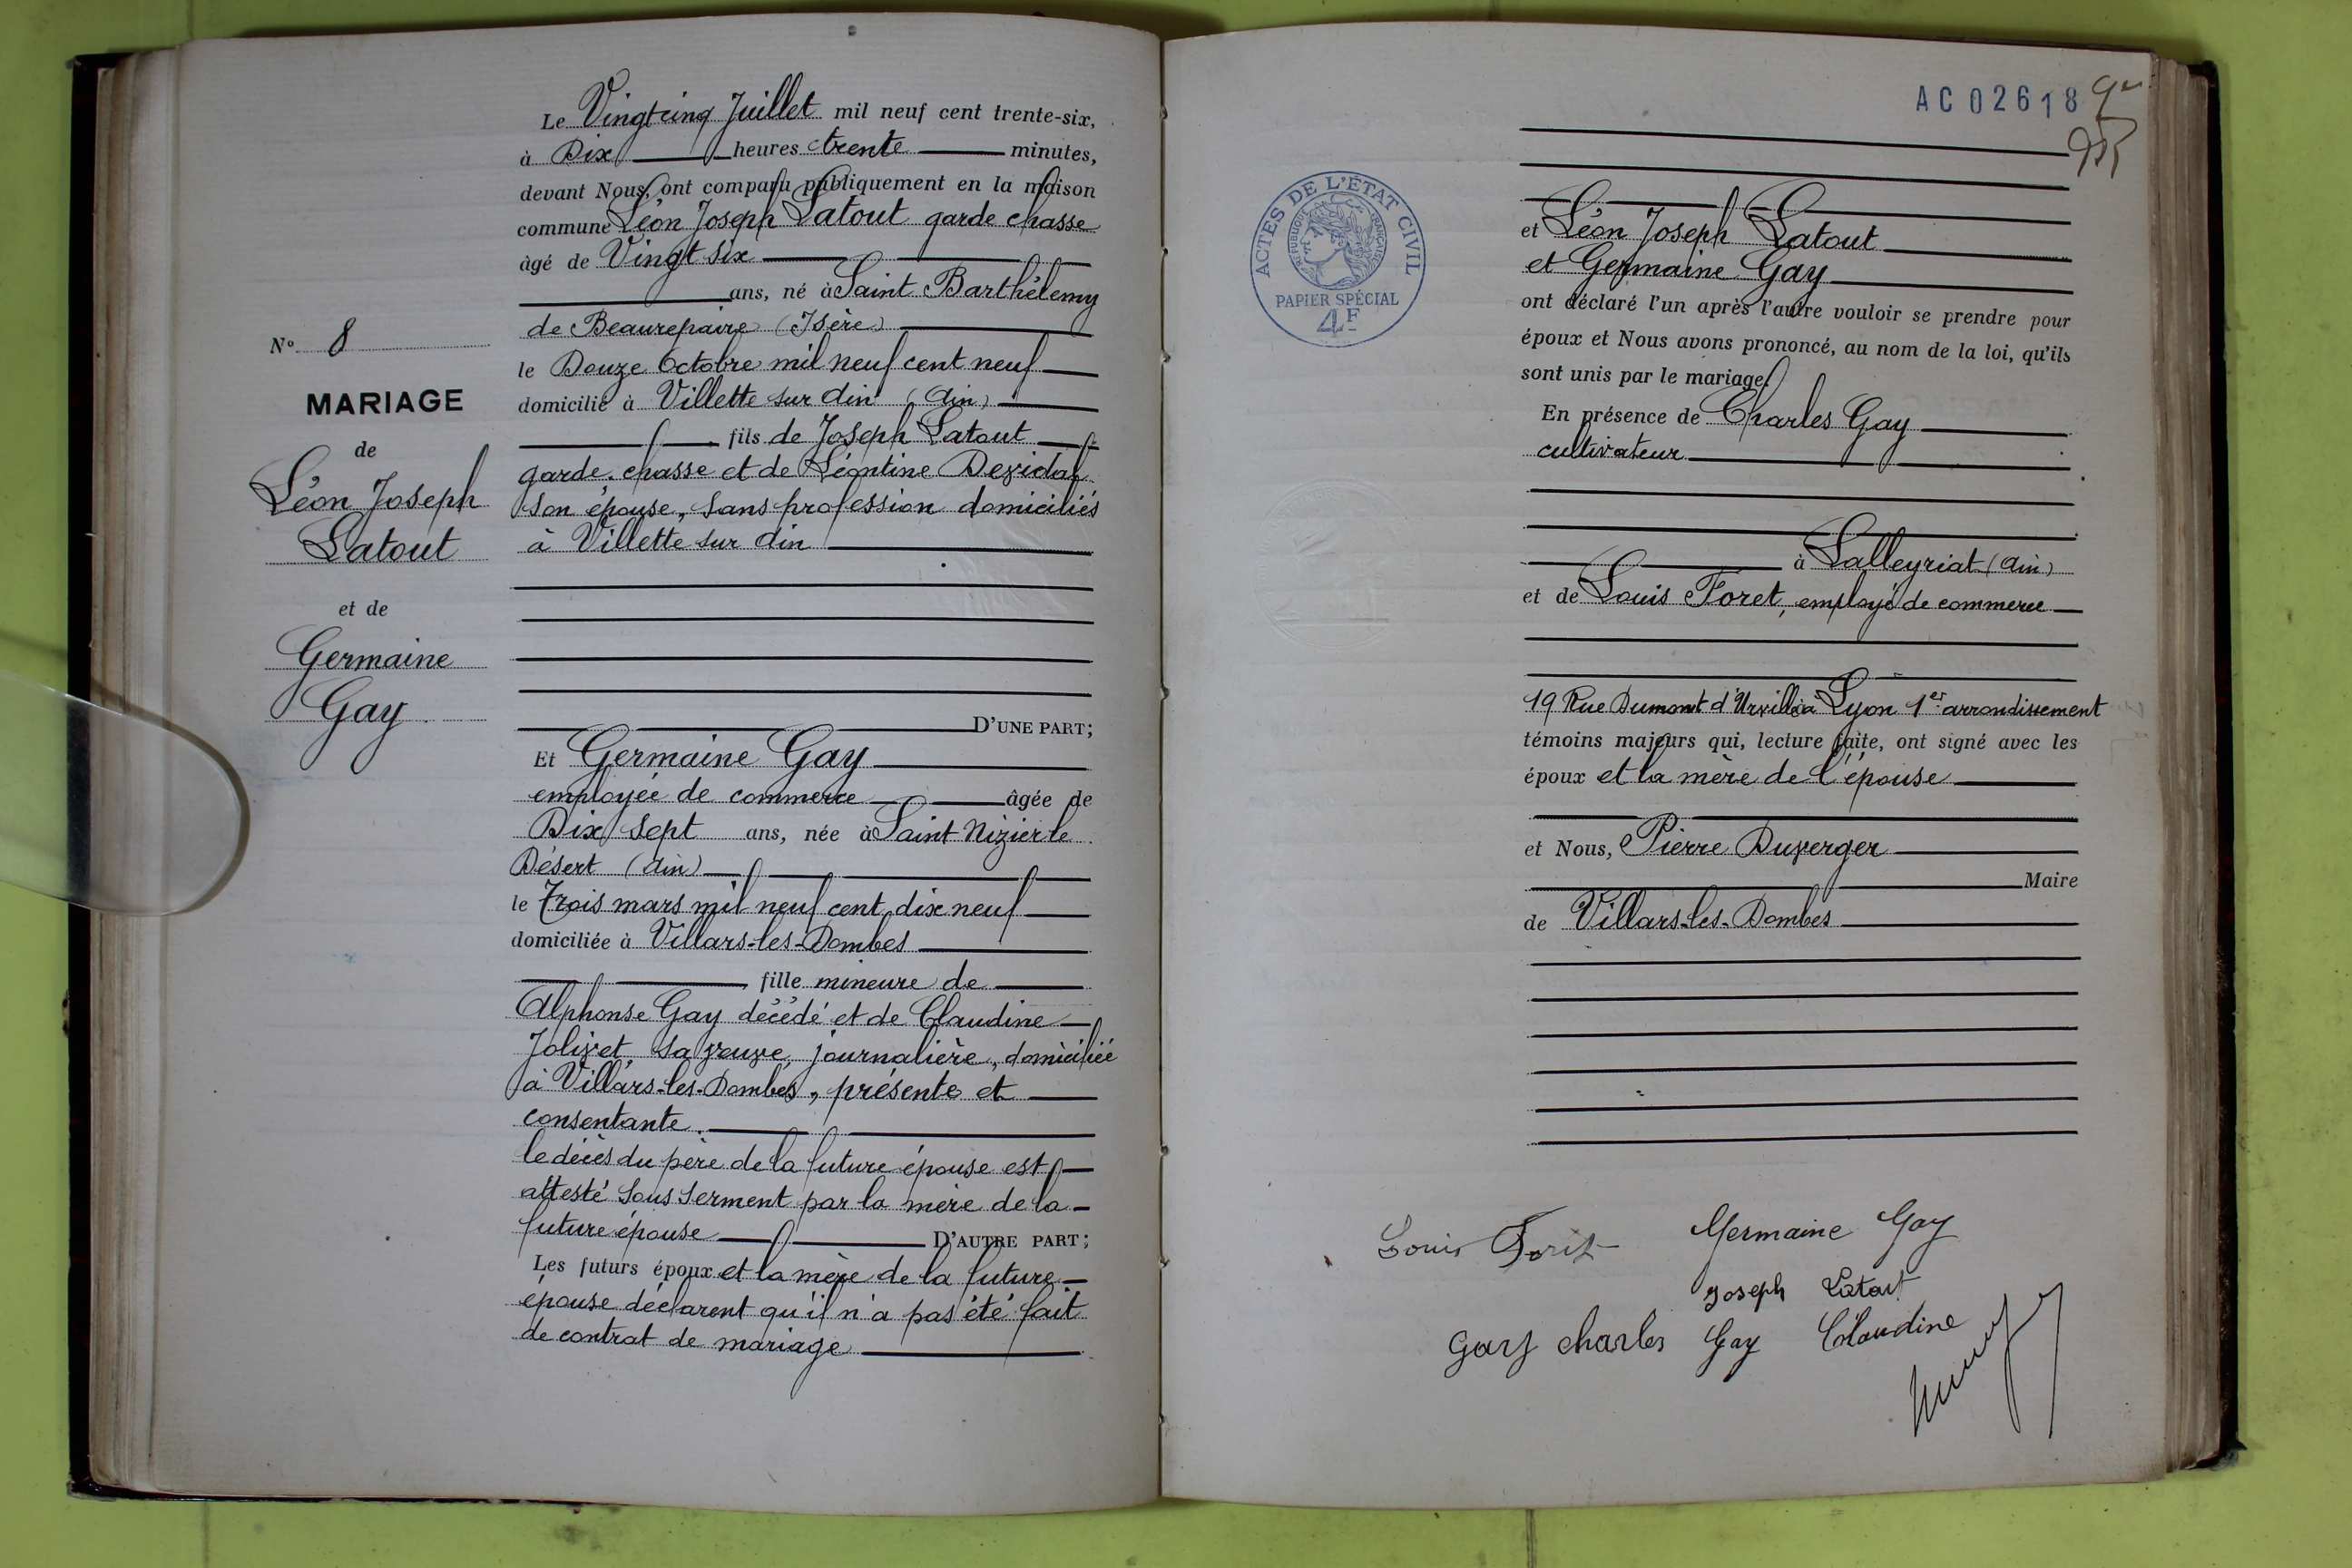 Le Vingt cinq Juillet mil neuf cent trente-six,
à Dix heures trente minutes,
devant Nous, ont comparu publiquement en la maison
commune Léon Joseph Latout garde chasse
âgé de Vingt six
ans, né à Saint Barthélemy
de Beaurepaire (Isère)
le Douze Octobre mil neuf cent neuf
domicilié à Villette sur Ain (Ain)
fils de Joseph Latout
garde-chasse et de Léontine Dervidal
son épouse, sans profession domiciliés
à Villette sur Ain
D'UNE PART;
Et Germaine Gay
employée de commerce âgée de
Dix sept ans, née à Saint Nizier le
Désert (Ain)
le Trois mars mil neuf cent dix neuf
domiciliée à Villars-les-Dombes
fille mineure de
Alphonse Gay décédé et de Claudine
Jolivet sa veuve, journalière, domiciliée
à Villars-les-Dombes, présente et
consentante.
le décès du père de la future épouse est
attesté sous serment par la mère de la
future épouse D'AUTRE PART;
Les futurs époux et la mère de la future
épouse déclarent qu'il n'a pas été fait
de contrat de mariage
N° 8
MARIAGE
de
Léon Joseph
Latout
et de
Germaine
Gay
AC 02618
ACTES DE L'ÉTAT CIVIL
RÉPUBLIQUE FRANÇAISE
PAPIER SPÉCIAL
4F
et Léon Joseph Latout
et Germaine Gay
ont déclaré l'un après l'autre vouloir se prendre pour
époux et Nous avons prononcé, au nom de la loi, qu'ils
sont unis par le mariage.
En présence de Charles Gay
cultivateur
à Lalleyriat (Ain)
et de Louis Foret, employé de commerce
19 Rue Dumont d'Urville à Lyon 1er arrondissement
témoins majeurs qui, lecture faite, ont signé avec les
époux et la mère de l'épouse
et Nous, Pierre Duverger
Maire
de Villars-les-Dombes
Louis Foret Germaine Gay
Joseph Latout
Gay Charles Gay Claudine